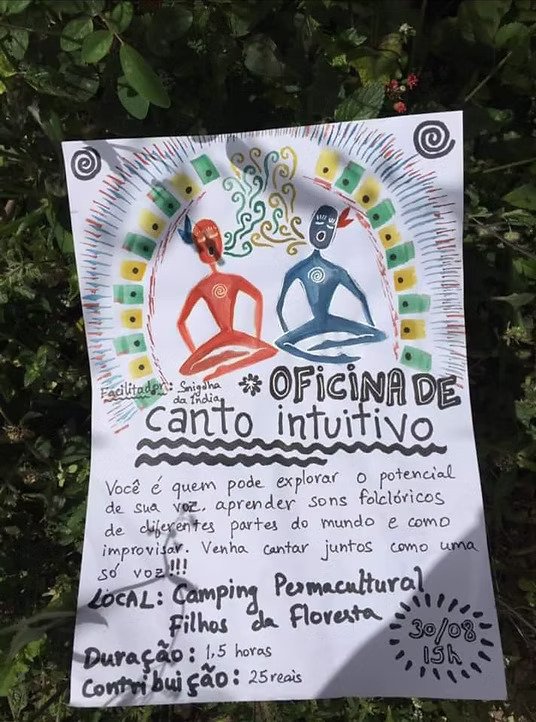 Facilitador: Snigdha
da Índia
OFICINA DE
canto intuitivo
Você é quem pode explorar o potencial
de sua voz, aprender sons folclóricos
de diferentes partes do mundo e como
improvisar. Venha cantar juntos como uma
só voz!!!
LOCAL: Camping Permacultural
Filhos da Floresta
30/08
15h
Duração: 1,5 horas
Contribuição: 25 reais